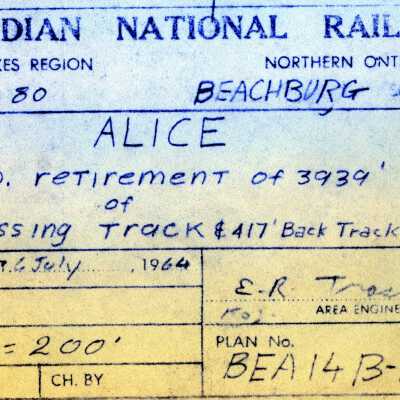 DIAN NATIONAL RAIL
KES REGION NORTHERN ONT
80 BEACHBURG
ALICE
. retirement of 3939'
of
ssing Track & 417' Back Track
6 July , 1964
E.R.
AREA ENGINE
= 200'
PLAN No.
CH. BY
BEA 14 B-